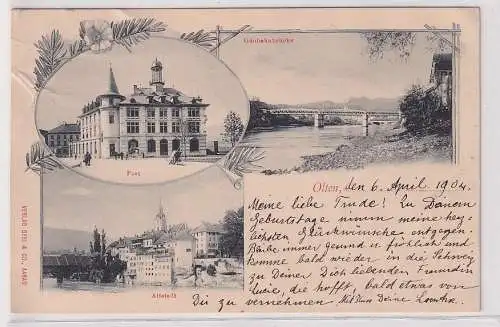 Gäubahnbrücke
Post
Altstadt
VERLAG GUNI & CO., AARAU
Olten, den 6. April 1904.
Meine liebe Trude! Zu Deinem
Geburtstage nimm meine herz-
lichsten Glückwünsche entgegen.
Bleibe immer gesund u. fröhlich und
komme bald wieder in die Schweiz
zu Deiner Dich liebenden Freundin
Lucie, die hofft, bald etwas von
Dir zu vernehmen Mit Kuss Deine